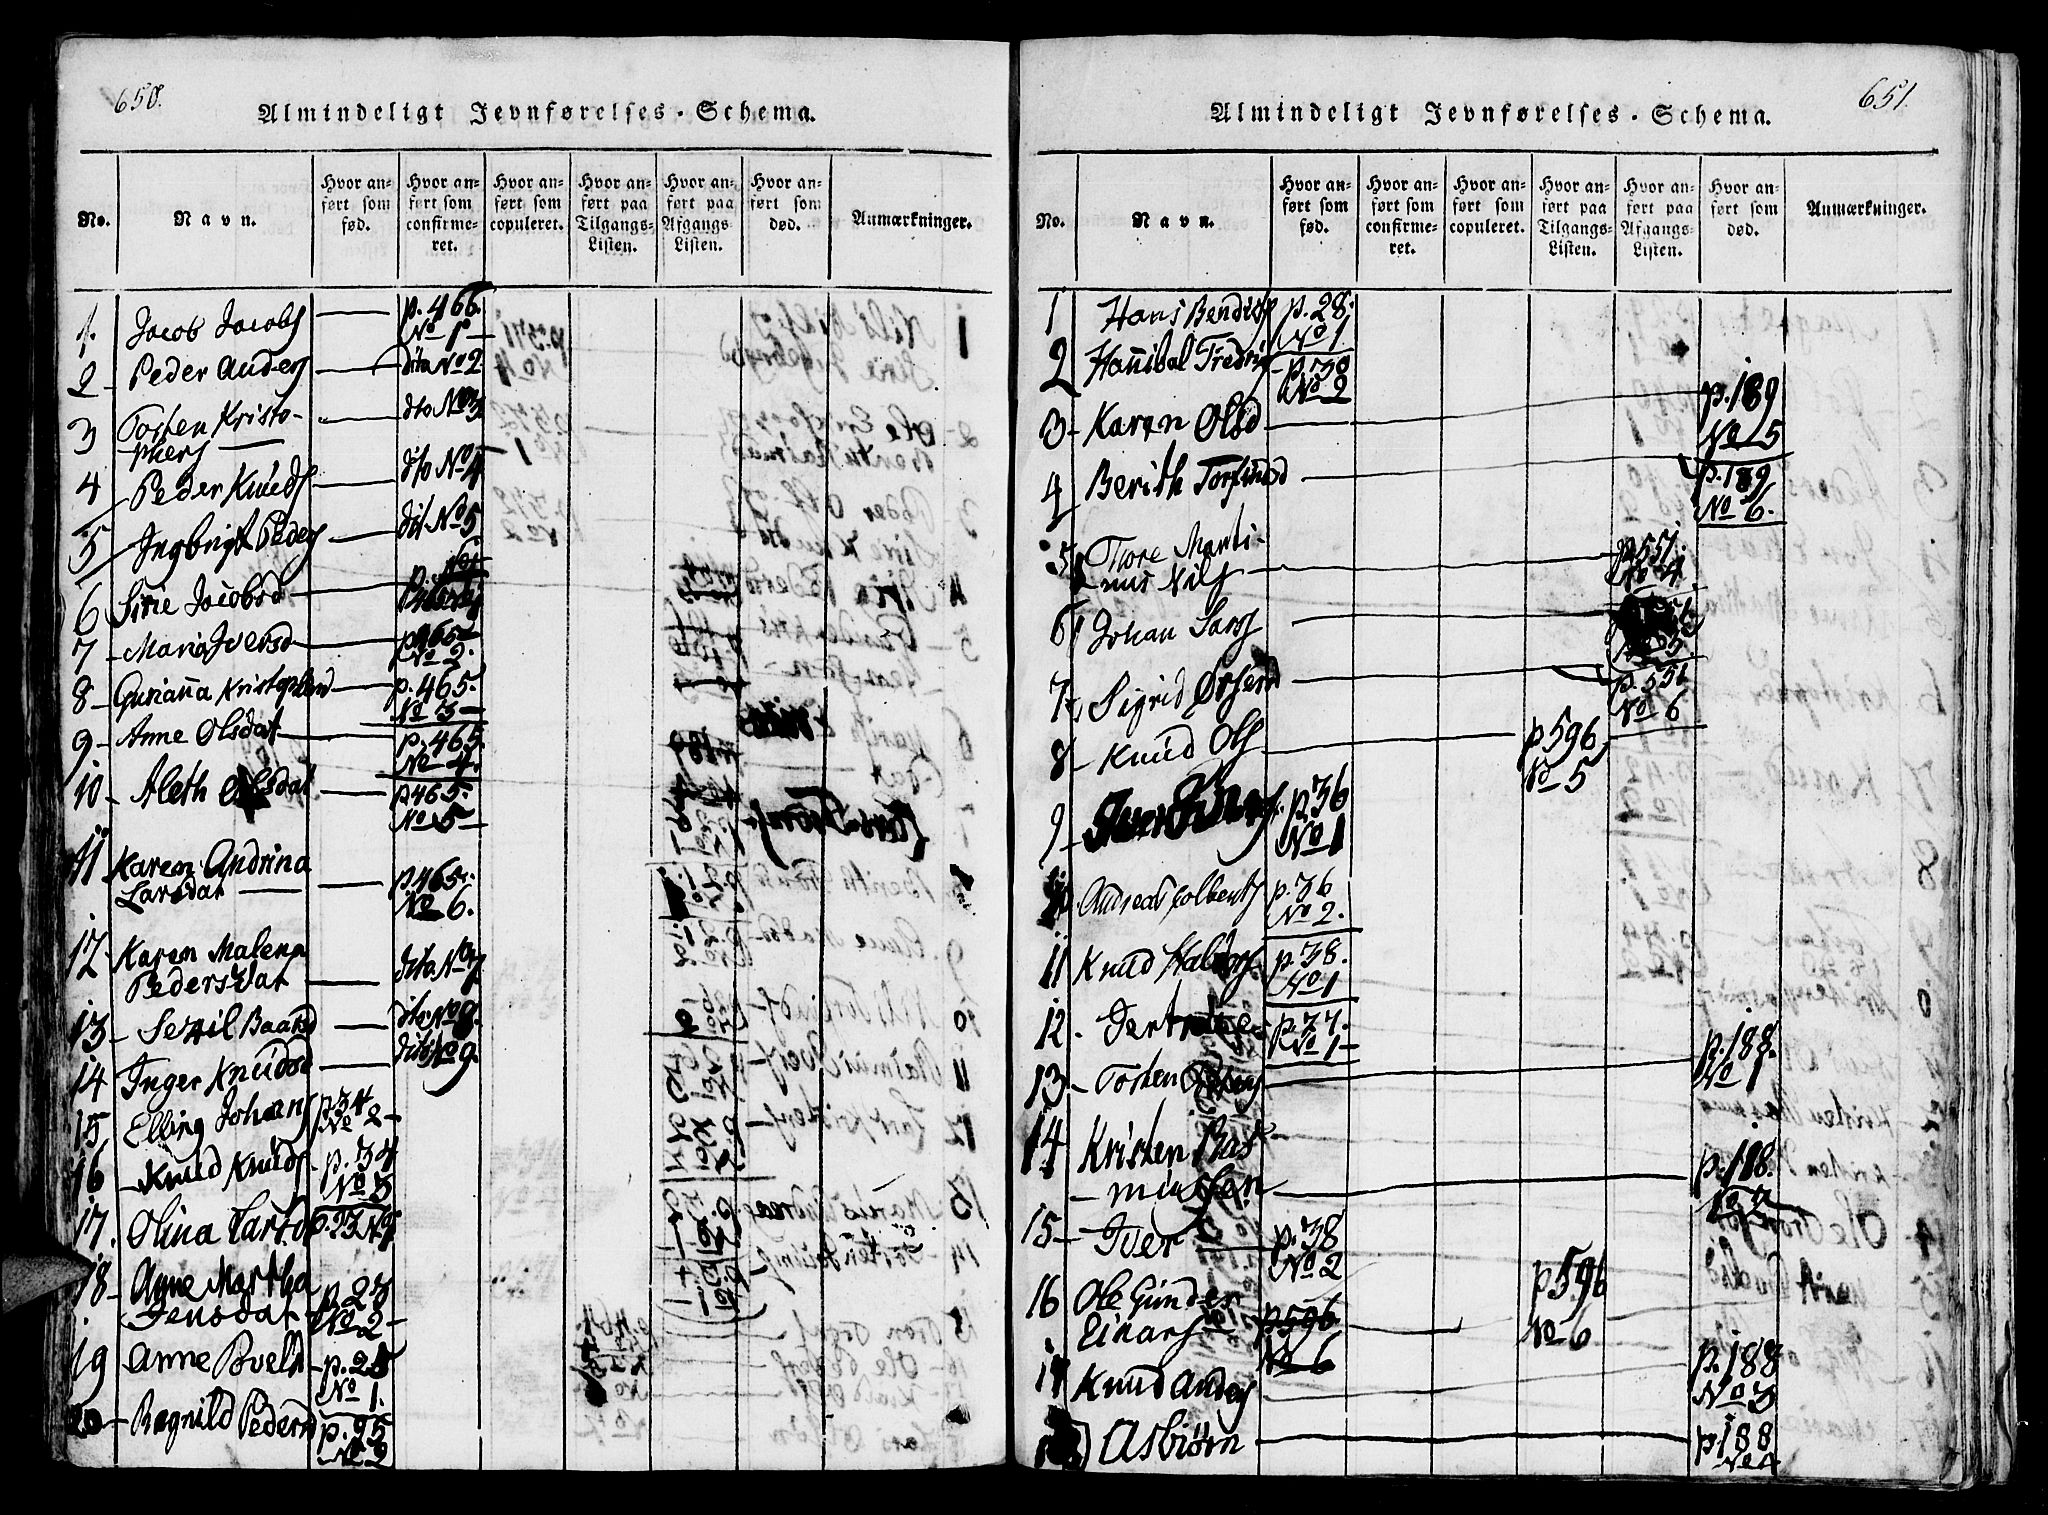 650.
Almindeligt Jevnførelses-Schema.
No.
Navn.
Hvor anført som fød.
Hvor anført som confirmeret.
Hvor anført som copuleret.
Hvor anført paa Tilgangs-Listen.
Hvor anført paa Afgangs-Listen.
Hvor anført som død.
Anmærkninger.
1. Jacob Jacobs — p. 466. No 1 —
2 - Peder Anders — dito No 2
3 Torsten Kristo- — dto No 3
phers —
4 Peder Knuds — dto No 4
5 Ingbrigt Peders — dit No 5
6 Sirie Jacobsd —
7 - Maria Iversd — p. 465 — No 2.
8 - Gurianna Kristophersd — p. 465. No 3 —
9 - Anne Olsdat — p. 465. No 4.
10 - Aleth Olsdat — p. 465. No 5 —
11 Karen Andrina
Larsdat — p. 465. No 6.
12. Karen Malena — dito No 7
Pedersdat —
13 - Serril Baards — dito No 8.
14 Inger Knudsd — dito No 9.
15 Elling Johans p. 34 No 2 -
16 - Knud Knuds - p. 34 No 3
17. Olina Larsd p. 23 No 1
18 - Anne Martha p. 23
Jensdat No 2 -
19 Anne Poveld - p. 28 No 1.
20 - Ragnild Pedersd p. 95 No 2
651.
Almindeligt Jevnførelses-Schema.
No.
Navn.
Hvor anført som fød.
Hvor anført som confirmeret.
Hvor anført som copuleret.
Hvor anført paa Tilgangs-Listen.
Hvor anført paa Afgangs-Listen.
Hvor anført som død.
Anmærkninger.
1 Hans Bendix p. 28. No 1
2 Hannibal Fredri - p. 30 No 2
3 - Karen Olsd — p. 189 No 5
4 - Berith Torfinnsd — p. 189 No 6.
5 Thore Marti-
nus Nils — p. 551. No 4
6 Johan Lars — No 5
7 - Sigrid — p. 551 No 6
8 - Knud Ols — p 596 No 5
9 - Iver p. 36 No 1
10. Andreas Colbents p. 36 No 2.
11 Knud p. 38. No 1
12. - p. 77. No 1 —
13 - Torsten — p. 188. No 1
14 Kristen Ras-
mussen — p. 188. No 2
15 - Iver p. 38 No 2
16 Ole Gunder p. 596 No 6
Einars p. 596. No 6
17 Knud Anders — p. 188 No 3
18 Asbiørn — p. 188 No 4